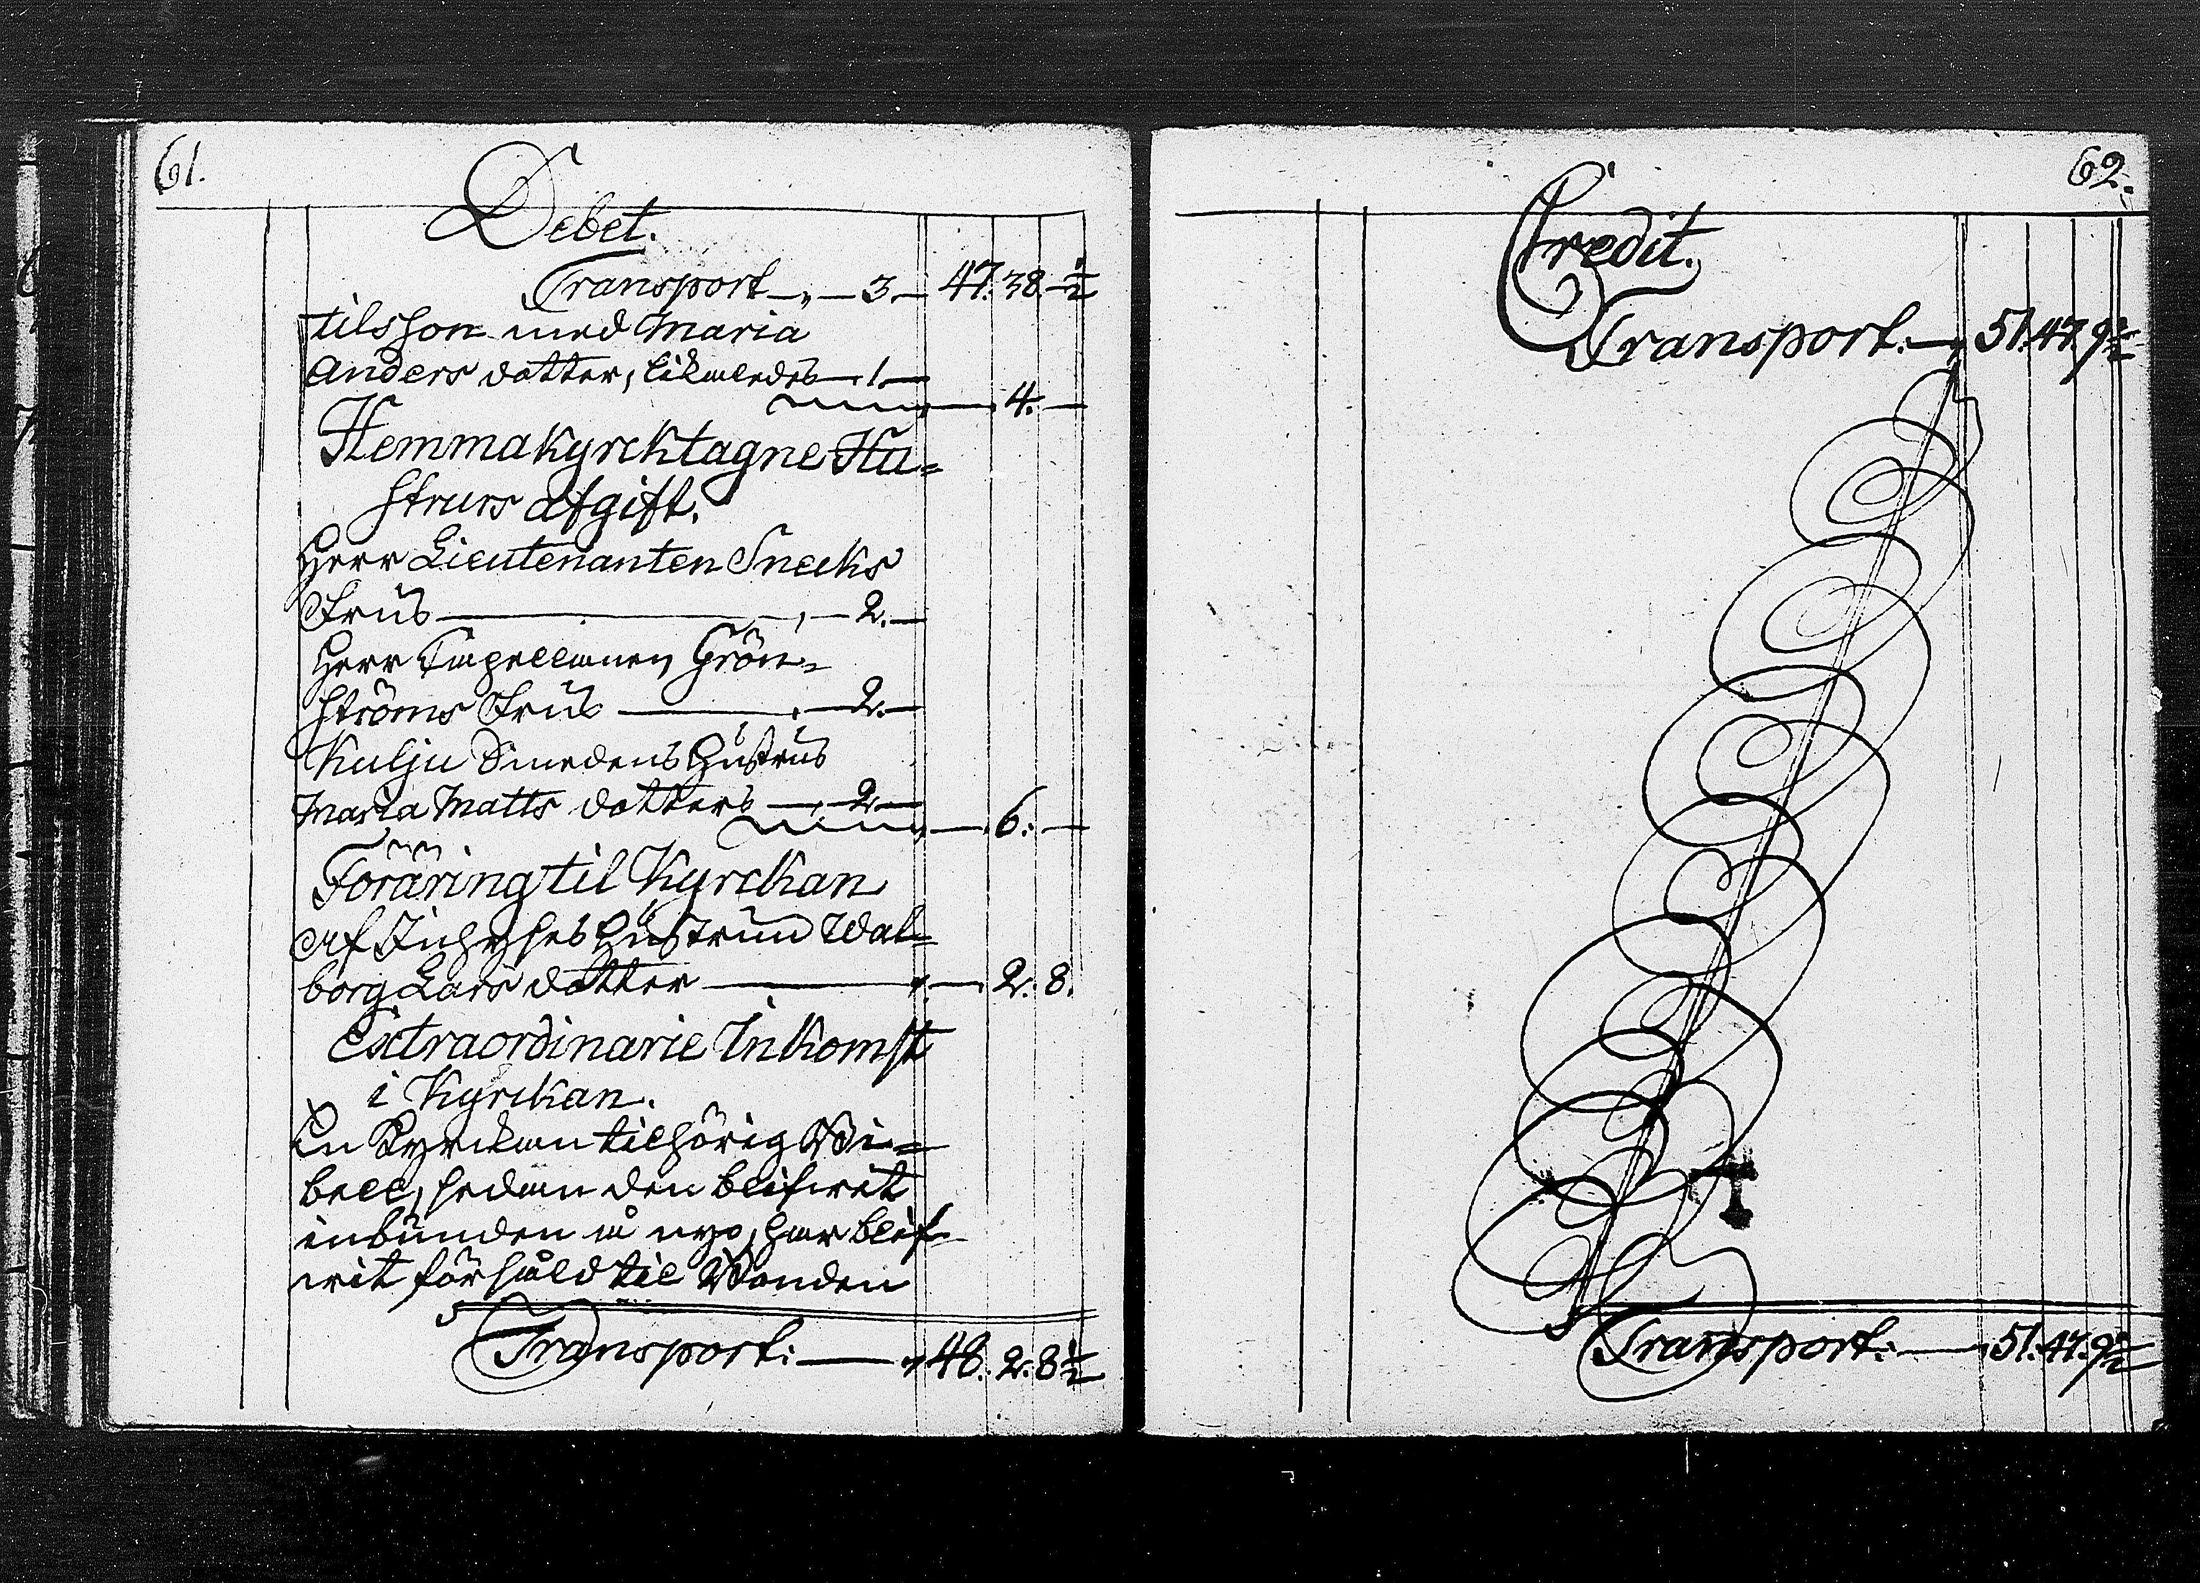 61.
Debet.
Transport — " — 3. — 47. 38. — ½
tilsson med Maria
Anders dotter, likaledes — 1 —
— 4. —
Hemmakyrcktagne Hu=
strurs afgift.
Herr Lieutenanten Snecks
Frus — , — 2. —
Herr Capellanen Grön=
ströms Frus — , — 2. —
Kulju Smedens Hustrus
Maria Matts dotters — , — 2 —
— 6. —
Föräring til Kyrckan
Af Hustrun Wal=
borg Lars dotter — " — 2. 8.
Extraordinarie Inkomst
i Kyrckan.
En Kyrckan tilhörig Bi=
bell, sedan den blifwit
inbunden å nyo, har blif=
wit försåld til Bonden
Transport: — " 48. 2. 8 ½
62.
Credit.
Transport: — " 51. 47. 9 ½
Transport: — " 51. 47. 9 ½